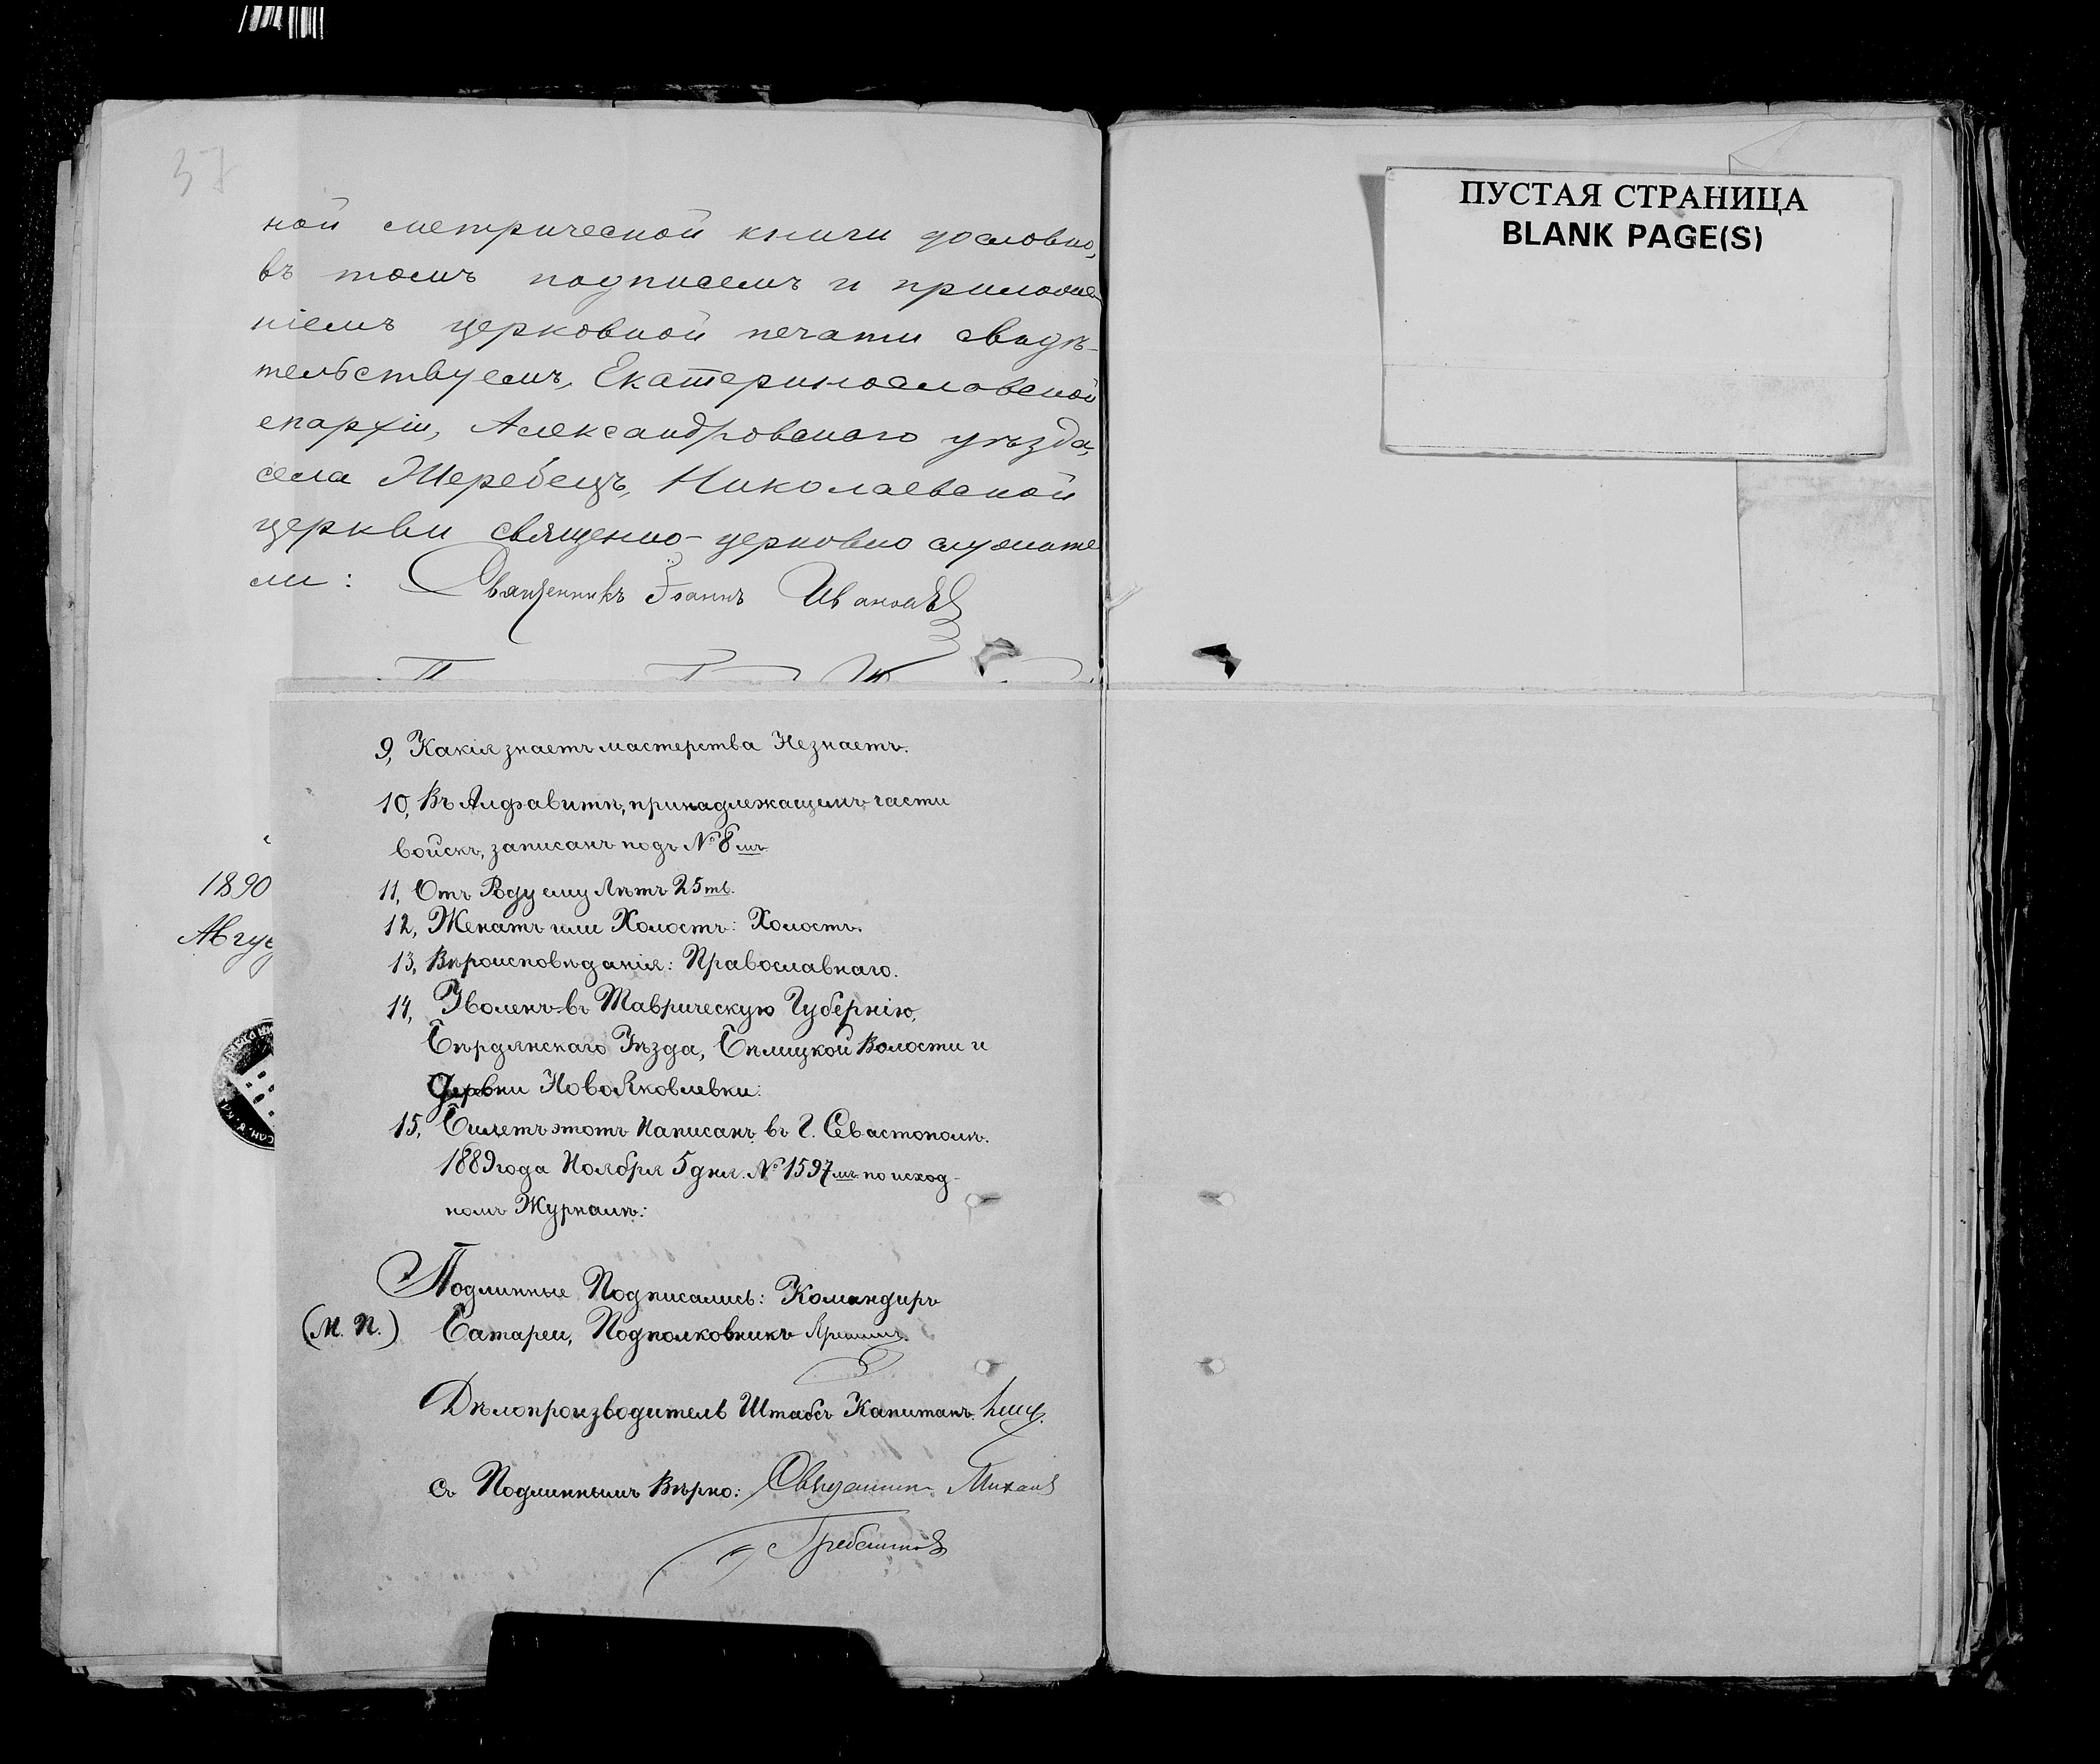 37
ной метрической книги дословно,
въ томъ подписемъ и приложе
ніемъ церковной печати свидѣ-
тельствуемъ, Екатеринославской
епархіи, Александровскаго уѣзда,
села Жеребецъ, Николаевской
церкви священно-церковно служите
ли: Священникъ Іоаннъ Ивановъ
9, Какія знаетъ мастерства Незнаетъ.
10, Въ Алфавитѣ, принадлежащемъ части
войскъ, записанъ подъ № 8мъ
11, Отъ Роду ему Лѣтъ 25ть.
12, Женатъ или Холостъ: Холостъ.
13, Вѣроисповѣданія: Православнаго.
14, Уволенъ въ Таврическую Губернію,
Бердянскаго Уѣзда, Волости и
Деревни НовоЯковлевки:
15, Билетъ этотъ Написанъ въ Г. Севастополѣ.
1889 года Ноября 5 дня. № 1597мъ по исход-
номъ Журналѣ:
1890
Авгус
Подлинные Подписались: Командиръ
(М. П.) Батареи, Подполковникъ
Дѣлопроизводитель Штабсъ Капитанъ
Съ Подлиннымъ Вѣрно: Священникъ Михаил
Гребенниковъ
ПУСТАЯ СТРАНИЦА
BLANK PAGE(S)